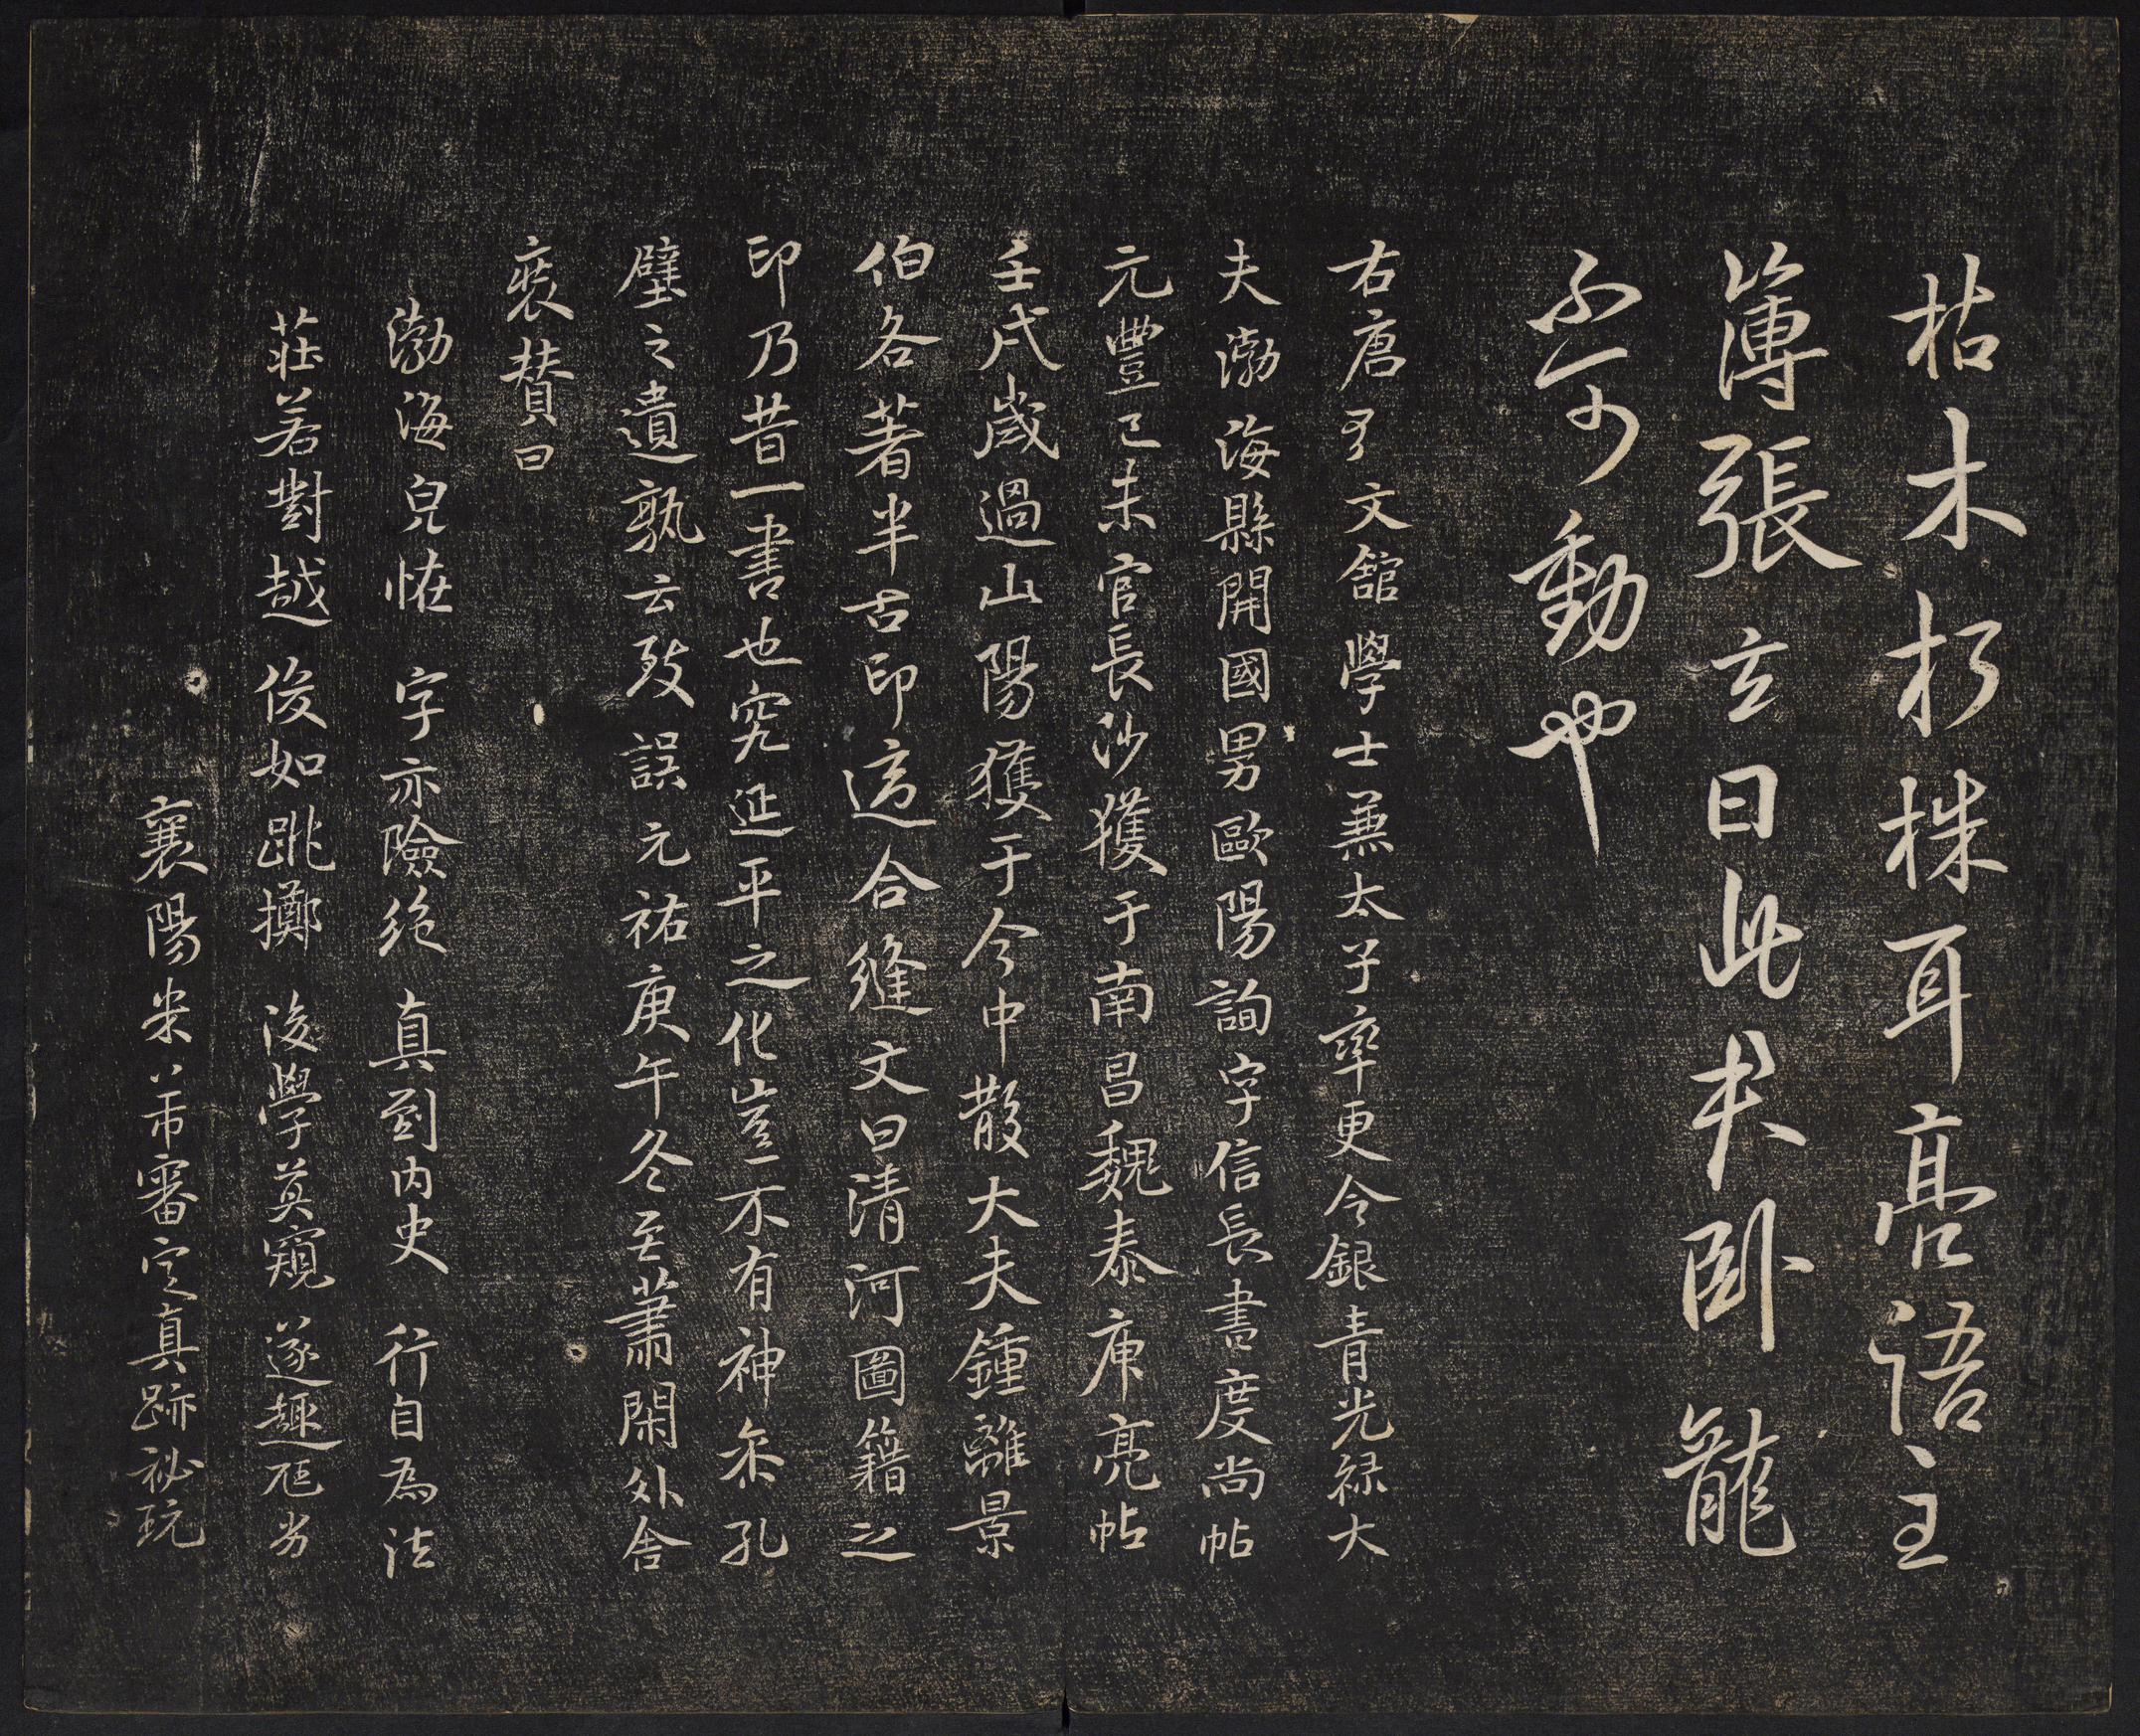 枯木朽株耳亮語主
簿張玄曰此夫卧龍
不可動也
右唐弘文館學士兼太子率更令銀青光禄大
夫渤海縣開國男歐陽詢字信長書度尚帖
元豐己未官長沙獲于南昌魏泰庾亮帖
壬戌歲過山陽獲于今中散大夫鍾離景
伯各著半古印這合縫文曰清河圖籍之
印乃昔一書也究延平之化豈不有神希孔
壁之遺孰云致誤元祐庚午冬至蕭閑外舍
裝贊曰
渤海皃恠 字亦險絶 真到内史 行自為法
莊若對越 俊如跳擲 後學莫窺 遂趣尫劣
襄陽米芾審定真跡祕玩